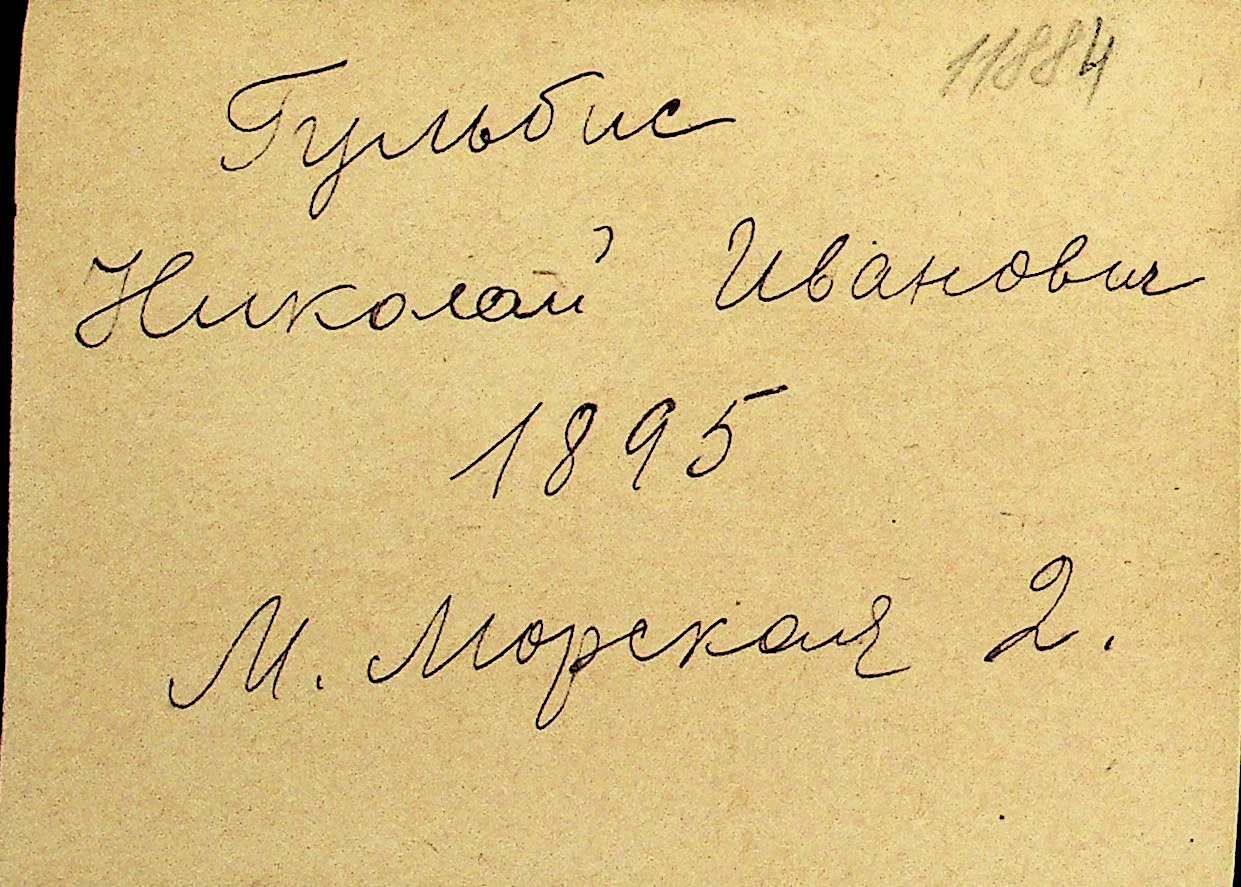 11884
Гульбис
Николай Иванович
1895
М. Морская 2.